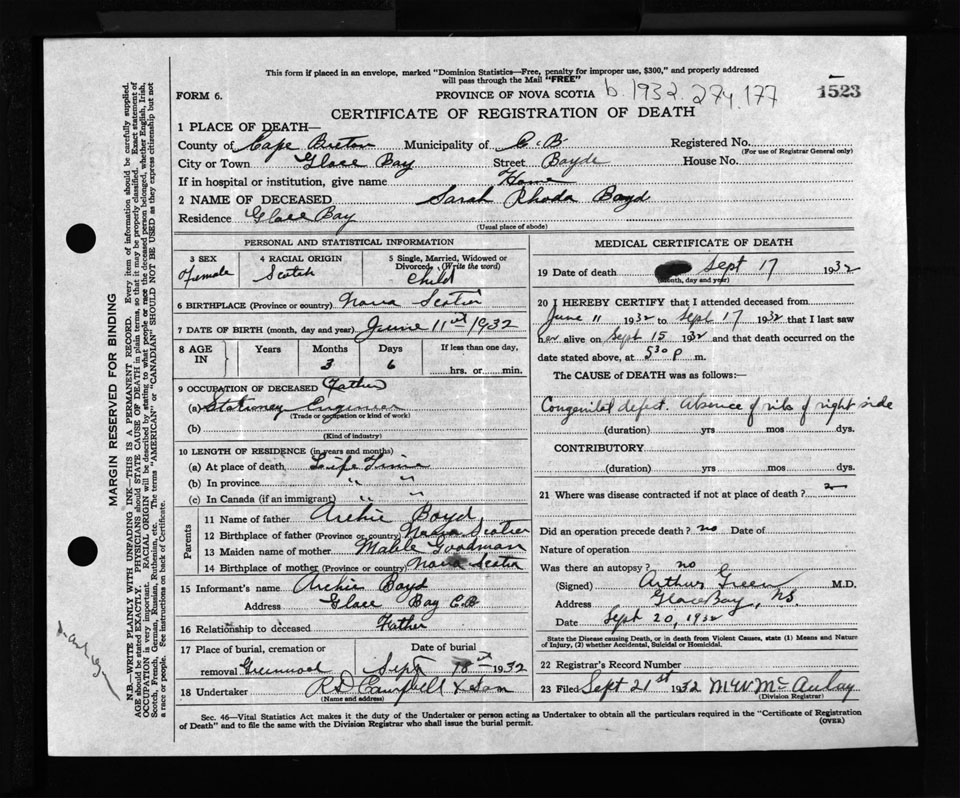 This form if placed in an envelope, marked "Dominion Statistics—Free, penalty for improper use, $300," and properly addressed
will pass through the Mail "FREE"
FORM 6.
PROVINCE OF NOVA SCOTIA b. 1932. 274.177
1523
CERTIFICATE OF REGISTRATION OF DEATH
1 PLACE OF DEATH—
County of Cape Breton Municipality of C-B Registered No.
(For use of Registrar General only)
City or Town Glace Bay Street Boyde House No.
If in hospital or institution, give name Home
2 NAME OF DECEASED Sarah Rhoda Boyd
Residence Glace Bay
(Usual place of abode)
PERSONAL AND STATISTICAL INFORMATION
3 SEX Female
4 RACIAL ORIGIN Scotch
5 Single, Married, Widowed or Divorced (Write the word) Child
6 BIRTHPLACE (Province or country) Nova Scotia
7 DATE OF BIRTH (month, day and year) June 11st 1932
8 AGE IN Years Months 3 Days 6 If less than one day, hrs. or min.
9 OCCUPATION OF DECEASED Father
(a) Stationey Engineer
(Trade or occupation or kind of work)
(b)
(Kind of industry)
10 LENGTH OF RESIDENCE (in years and months)
(a) At place of death Life Time
(b) In province " "
(c) In Canada (if an immigrant) " "
Parents
11 Name of father Archie Boyd
12 Birthplace of father (Province or country) Nova Scotia
13 Maiden name of mother Mable Goodman
14 Birthplace of mother (Province or country) Nova Scotia
15 Informant's name Archie Boyd
Address Glace Bay C.B
16 Relationship to deceased Father
17 Place of burial, cremation or removal Greenwood Date of burial Sept 18st 1932
18 Undertaker R D Campbell & Son
(Name and address)
MEDICAL CERTIFICATE OF DEATH
19 Date of death Sept 17 1932
(Month, day and year)
20 I HEREBY CERTIFY that I attended deceased from
June 11 1932 to Sept 17 1932 that I last saw
her alive on Sept 15 1932 and that death occurred on the
date stated above, at 530 p m.
The CAUSE OF DEATH was as follows:—
Congenital defect. Absence of ribs of right side
(duration) yrs mos dys.
CONTRIBUTORY
(duration) yrs mos dys.
21 Where was disease contracted if not at place of death?
Did an operation precede death? no Date of
Nature of operation
Was there an autopsy? no
(Signed) Arthur Green M.D.
Address Glace Bay, NS.
Date Sept 20, 1932
State the Disease causing Death, or in death from Violent Causes, state (1) Means and Nature
of Injury, (2) whether Accidental, Suicidal or Homicidal.
22 Registrar's Record Number
23 Filed Sept 21st 1932 M W McAulay
(Division Registrar)
Sec. 46—Vital Statistics Act makes it the duty of the Undertaker or person acting as Undertaker to obtain all the particulars required in the "Certificate of Registration
of Death" and to file the same with the Division Registrar who shall issue the burial permit.
(OVER)
MARGIN RESERVED FOR BINDING
N.B.—WRITE PLAINLY WITH UNFADING INK—THIS IS A PERMANENT RECORD. Every item of information should be carefully supplied.
AGE should be stated EXACTLY. PHYSICIANS should STATE CAUSE OF DEATH in plain terms, so that it may be properly classified. Exact statement of
OCCUPATION is very important. RACIAL ORIGIN will be described by stating to what people or race the deceased person belonged, whether English, Irish,
Scotch, French, German, Russian, Ruthenian, etc. The terms "AMERICAN" or "CANADIAN" SHOULD NOT BE USED as they express citizenship but not
a race or people. See instructions on back of Certificate.